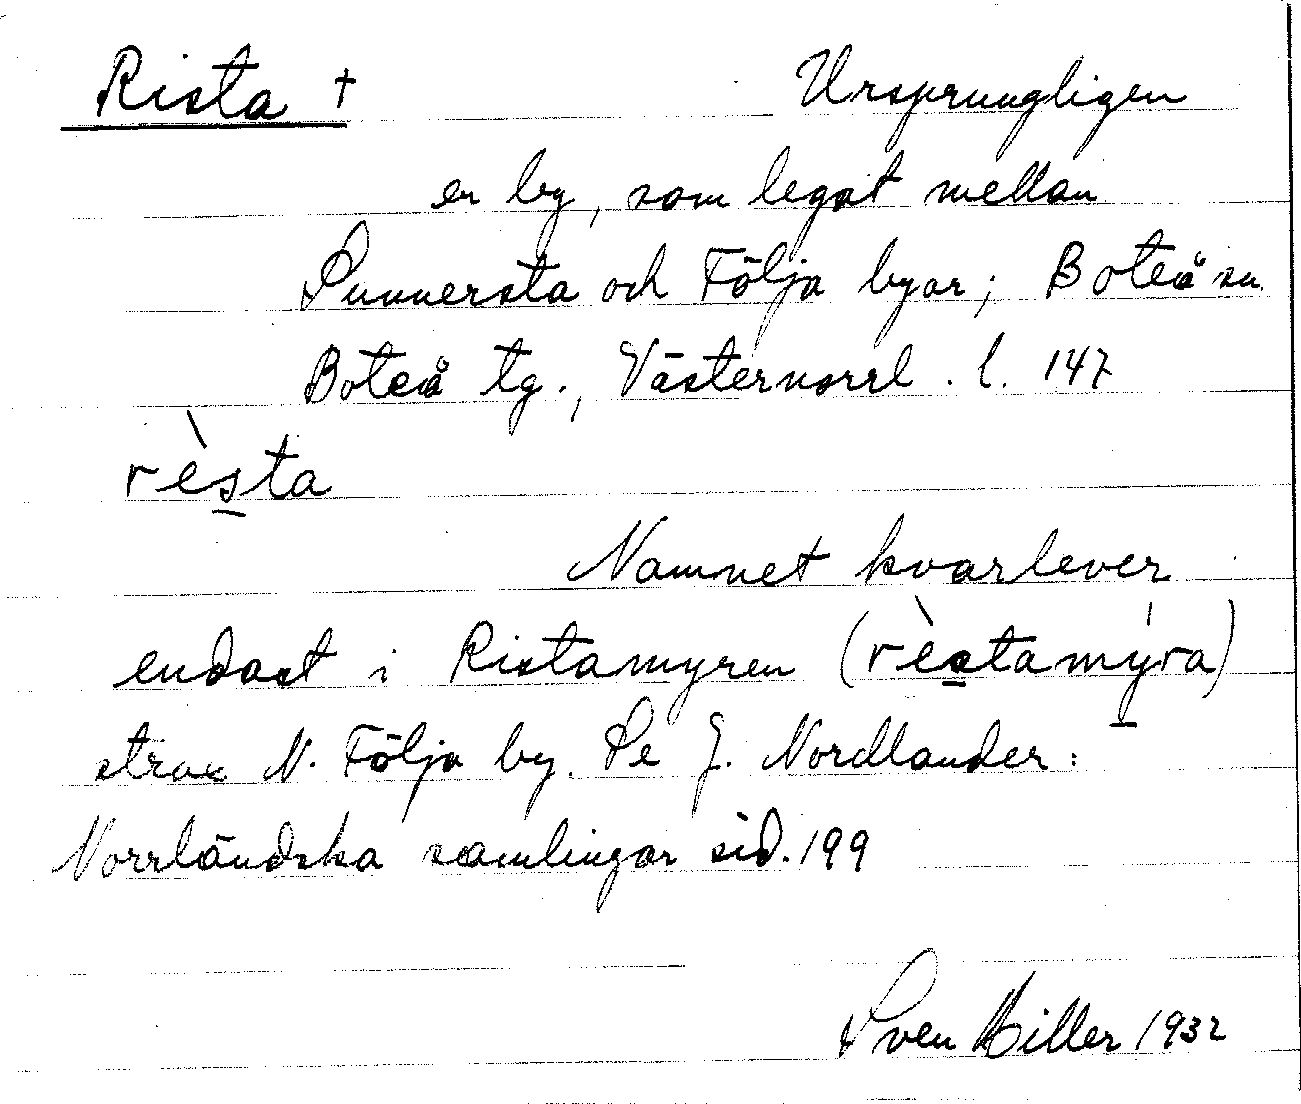 Rista † Ursprungligen
en by, som legat mellan
Sunnersta och Följa byar; Boteå sn.
Boteå tg., Västernorrl. l. 147
rèsta
Namnet kvarlever
endast i Ristamyren (rèstamýra)
strax N. Följa by. Se J. Nordlander:
Norrländska samlingar sid. 199
Sven Hiller 1932